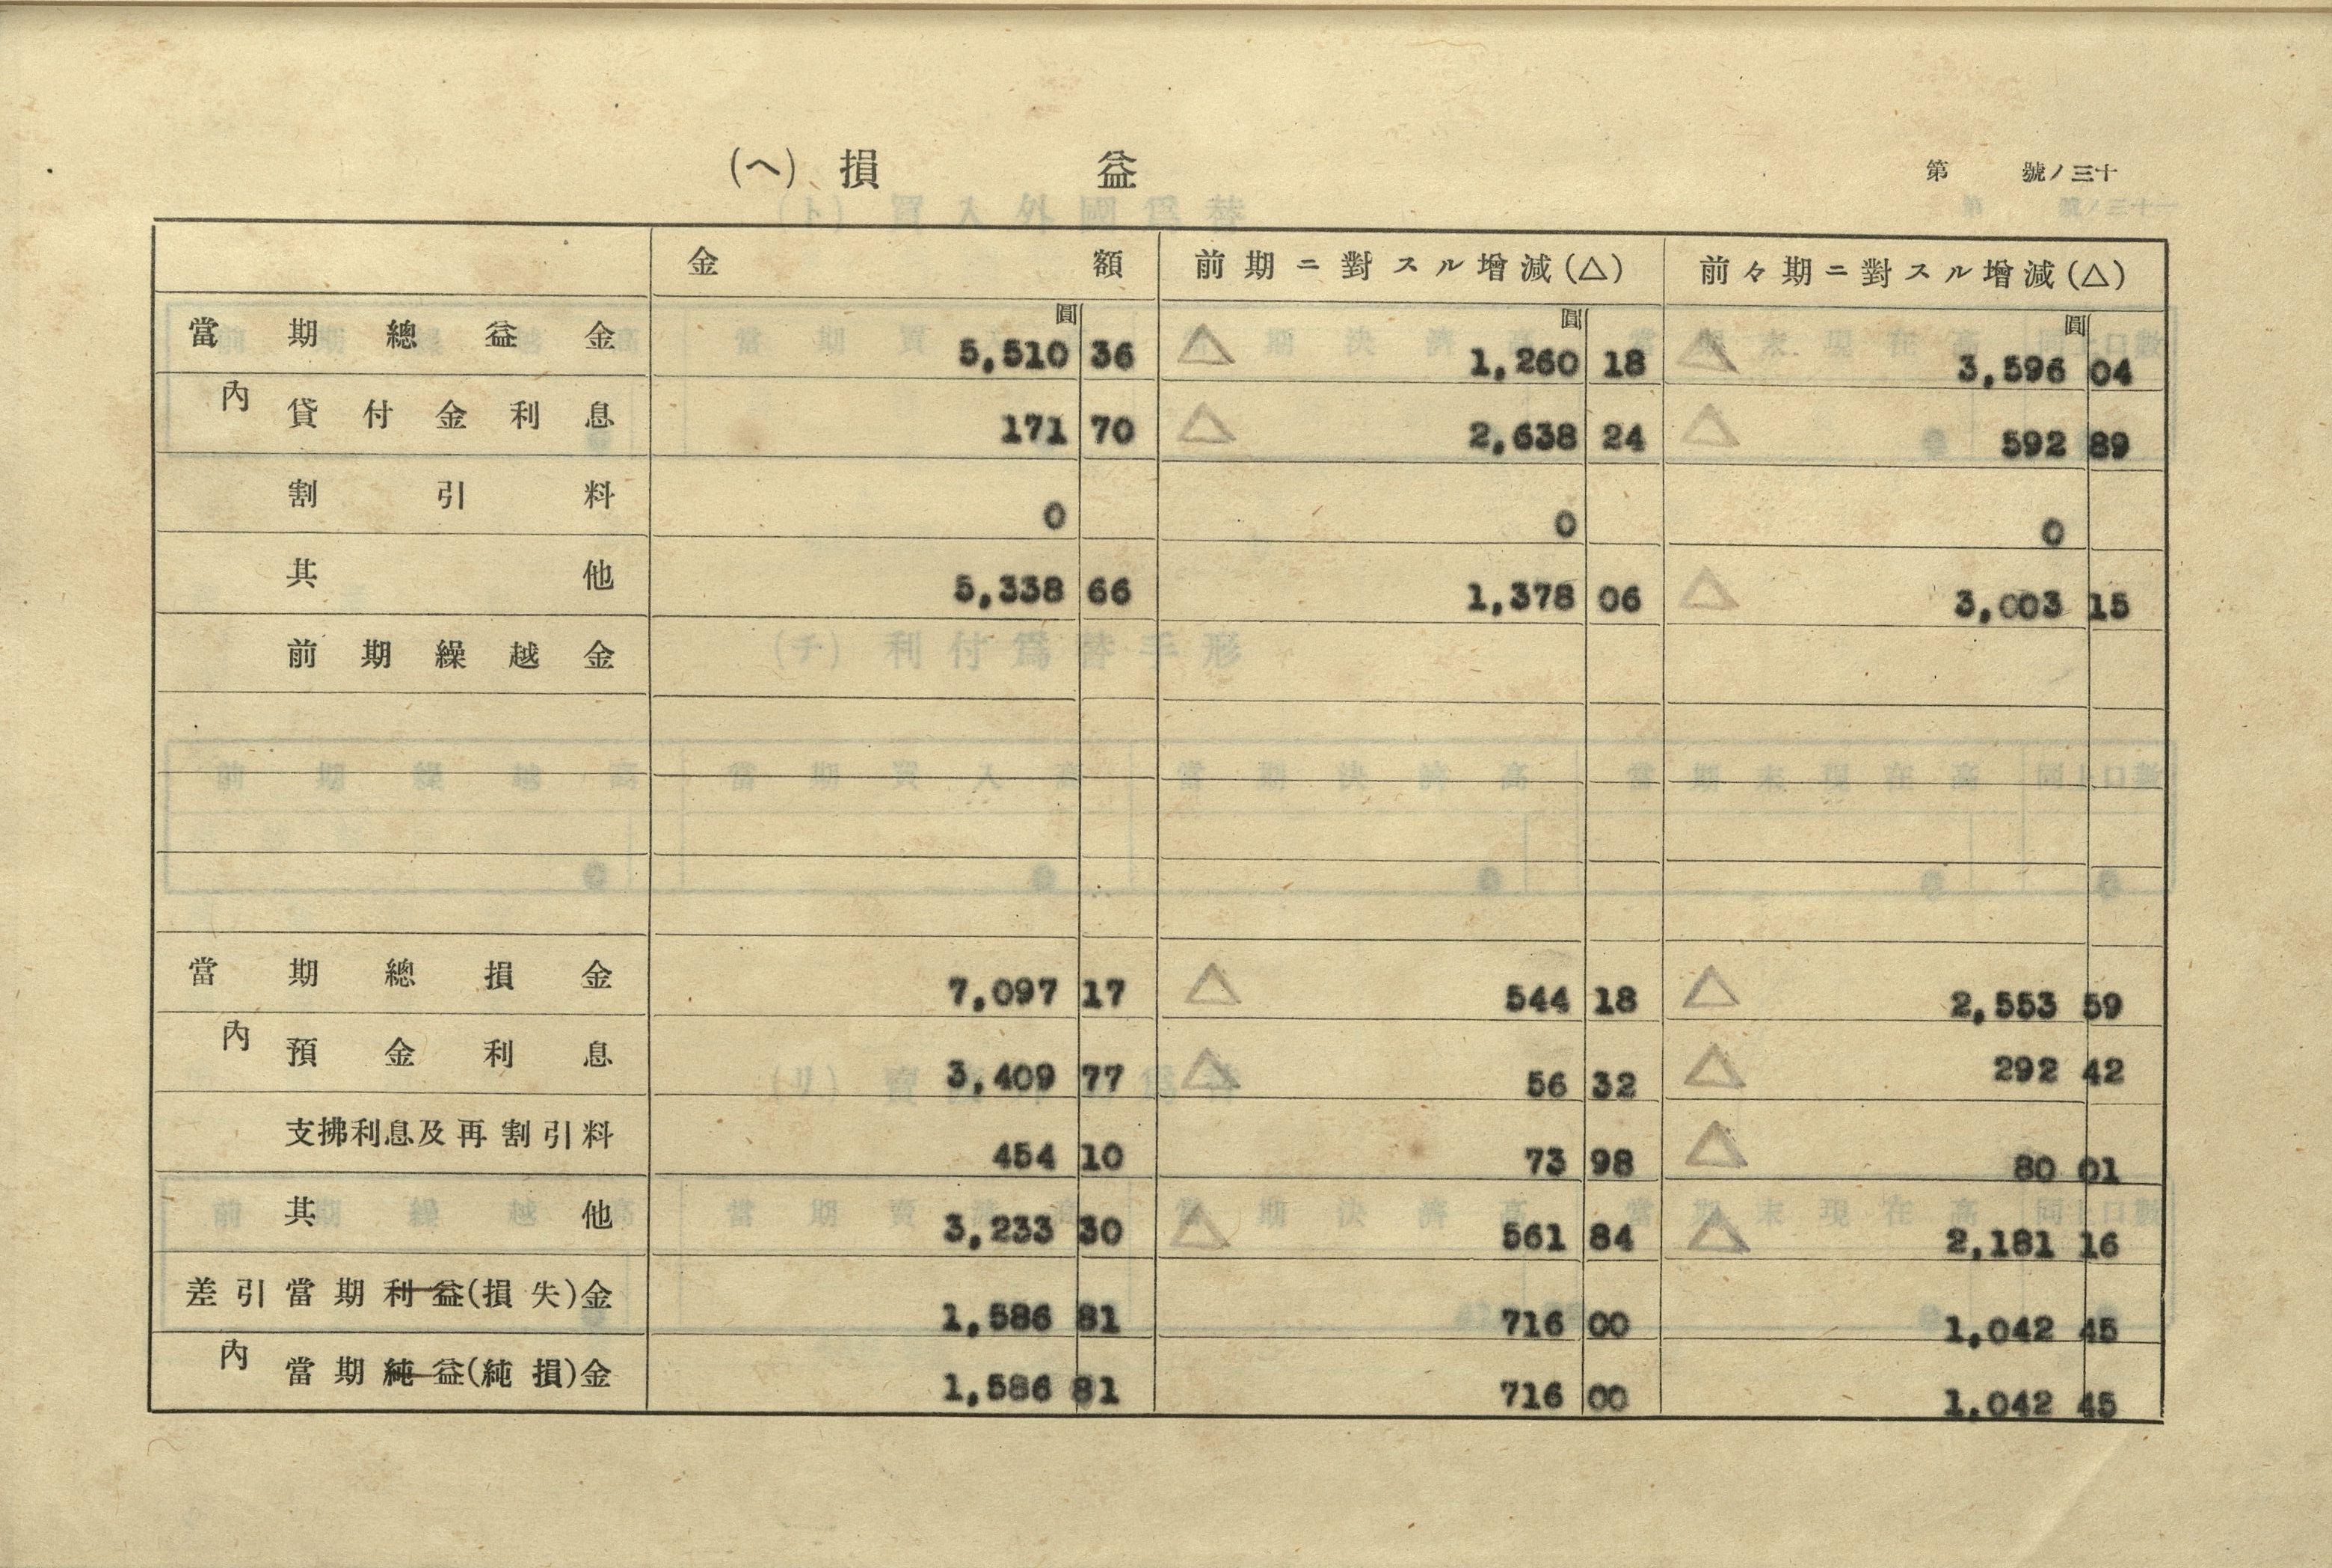 (ヘ) 損益
第 號ノ三十
金額 前期ニ對スル增減(△) 前々期ニ對スル增減(△)
圓 圓 圓
當期總益金 5,510 36 △ 1,260 18 △ 3,596 04
內 貸付金利息 171 70 △ 2,638 24 △ 592 89
割引料 0 0 0
其他 5,338 66 1,378 06 △ 3,003 15
前期繰越金
當期總損金 7,097 17 △ 544 18 △ 2,553 59
內 預金利息 3,409 77 △ 56 32 △ 292 42
支拂利息及再割引料 454 10 73 98 △ 80 01
其他 3,233 30 △ 561 84 △ 2,181 16
差引當期利益(損失)金 1,586 81 716 00 1,042 45
內 當期純益(純損)金 1,586 81 716 00 1,042 45